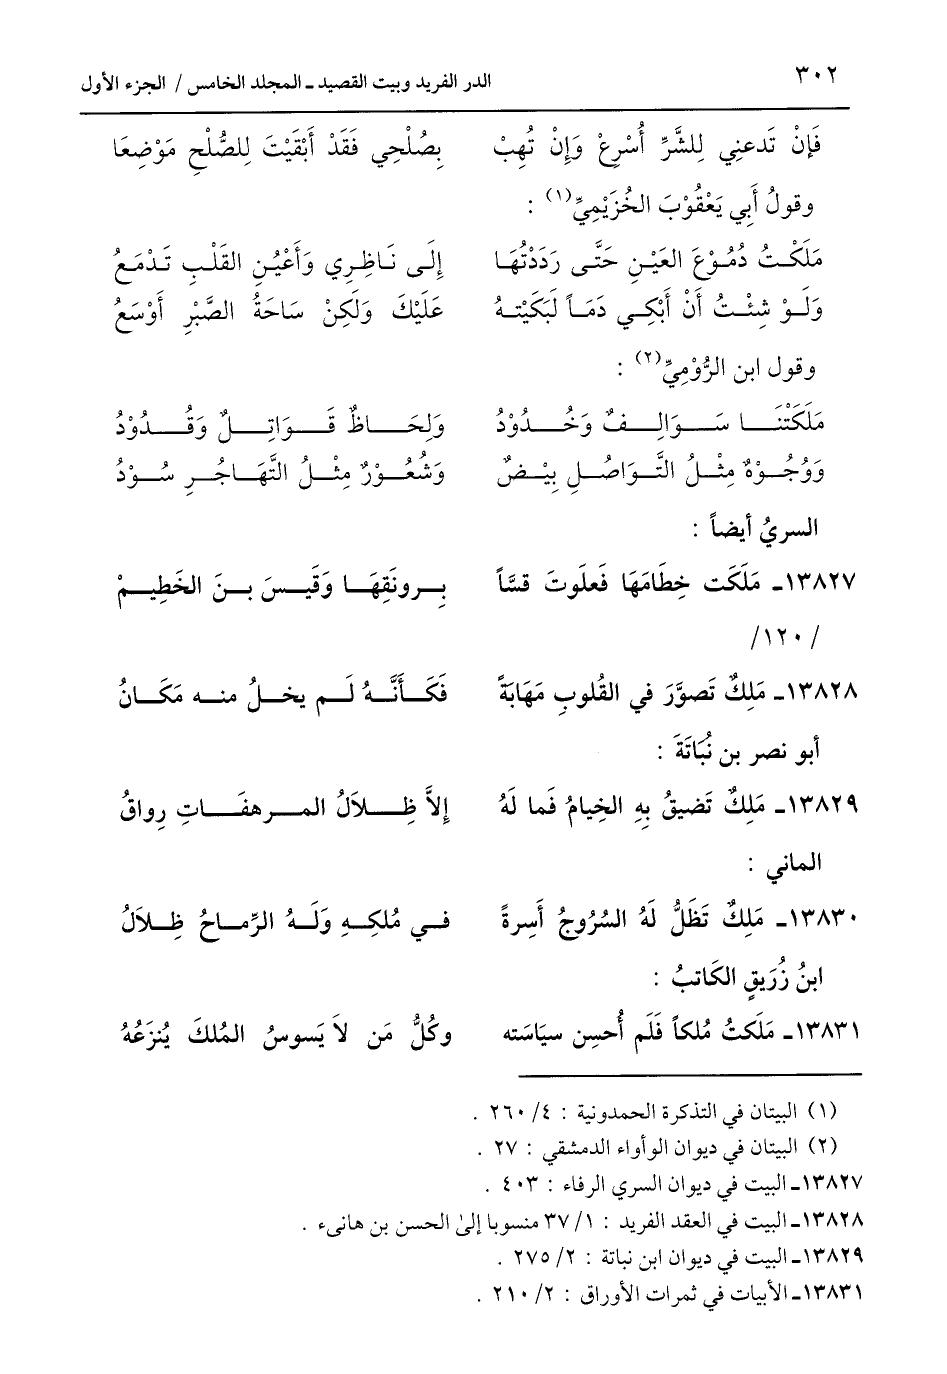 ٣٠٢ الدر الفريد وبيت القصيد ـ المجلد الخامس / الجزء الأول
فَإنْ تَدعنِي لِلشَّرِّ أُسْرِعْ وَإنْ تُهِبْ بِصُلْحِي فَقَدْ أَبْقَيْتَ لِلصُّلْحِ مَوْضِعَا
وقولُ أَبِي يَعْقُوْبَ الخُزَيْمِيِّ(١) :
مَلَكْتُ دُمُوْعَ العَيْنِ حَتَّى رَدَدْتُهَا إلَى نَاظِرِي وَأَعْيُنِ القَلْبِ تَدْمَعُ
وَلَوْ شِئْتُ أَنْ أَبْكِي دَمَاً لَبَكَيْتهُ عَلَيْكَ وَلَكِنْ سَاحَةُ الصَّبْرِ أَوْسَعُ
وقول ابن الرُّوْمِيِّ(٢) :
مَلَكَتْنَا سَوَالِفٌ وَخُدُوْدُ وَلِحَاظٌ قَوَاتِلٌ وَقُدُوْدُ
وَوُجُوْهٌ مِثْلُ التَّوَاصُلِ بِيْضٌ وَشُعُوْرٌ مِثْلُ التَّهَاجُرِ سُوْدُ
السريُ أيضاً :
١٣٨٢٧ـ مَلَكَت خِطَامَهَا فَعلَوتَ قسَّاً بِرونَقِهَا وَقَيسَ بنَ الخَطِيمْ
/١٢٠/
١٣٨٢٨ـ مَلِكٌ تَصوَّرَ في القُلوبِ مَهَابَةً فَكَأَنَّهُ لَم يخلُ منه مَكَانُ
أبو نصر بن نُبَاتَةَ :
١٣٨٢٩ـ مَلِكٌ تَضيقُ بِهِ الخِيامُ فَما لَهُ إلاَّ ظِلاَلُ المرهفَاتِ رِواقُ
الماني :
١٣٨٣٠ـ مَلِكٌ تَظَلُّ لَهُ السُرُوجُ أَسِرةً في مُلكِهِ وَلَهُ الرِّماحُ ظِلاَلُ
ابنُ زُرَيقٍ الكَاتبُ :
١٣٨٣١ـ مَلَكتُ مُلكاً فَلَم أُحسِن سيَاسَته وكُلُّ مَن لاَ يَسوسُ المُلكَ يُنزَعُهُ
(١) البيتان في التذكرة الحمدونية : ٤/ ٢٦٠ .
(٢) البيتان في ديوان الوأواء الدمشقي : ٢٧ .
١٣٨٢٧ـ البيت في ديوان السري الرفاء : ٤٠٣ .
١٣٨٢٨ـ البيت في العقد الفريد : ١/ ٣٧ منسوبا إلىٰ الحسن بن هانىء .
١٣٨٢٩ـ البيت في ديوان ابن نباتة : ٢/ ٢٧٥ .
١٣٨٣١ـ الأبيات في ثمرات الأوراق : ٢/ ٢١٠ .